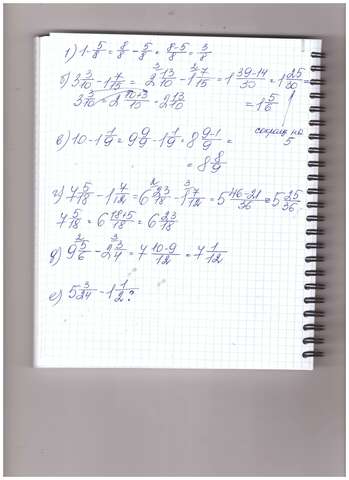 1) 1 - 5/8 = 8/8 - 5/8 = 8-5/8 = 3/8
б) 3 3/10 - 1 7/15 = 2 13/10 - 1 7/15 = 1 39-14/30 = 1 25/30 =
3 3/10 = 2 10+3/10 = 2 13/10 = 1 5/6
сокращ на 5
в) 10 - 1 1/9 = 9 9/9 - 1 1/9 = 8 9-1/9 =
= 8 8/9
г) 7 5/18 - 1 7/12 = 6 23/18 - 1 7/12 = 5 46-21/36 = 5 25/36
7 5/18 = 6 18+5/18 = 6 23/18
д) 9 5/6 - 2 3/4 = 7 10-9/12 = 7 1/12
е) 5 3/24 - 1 1/2 ?